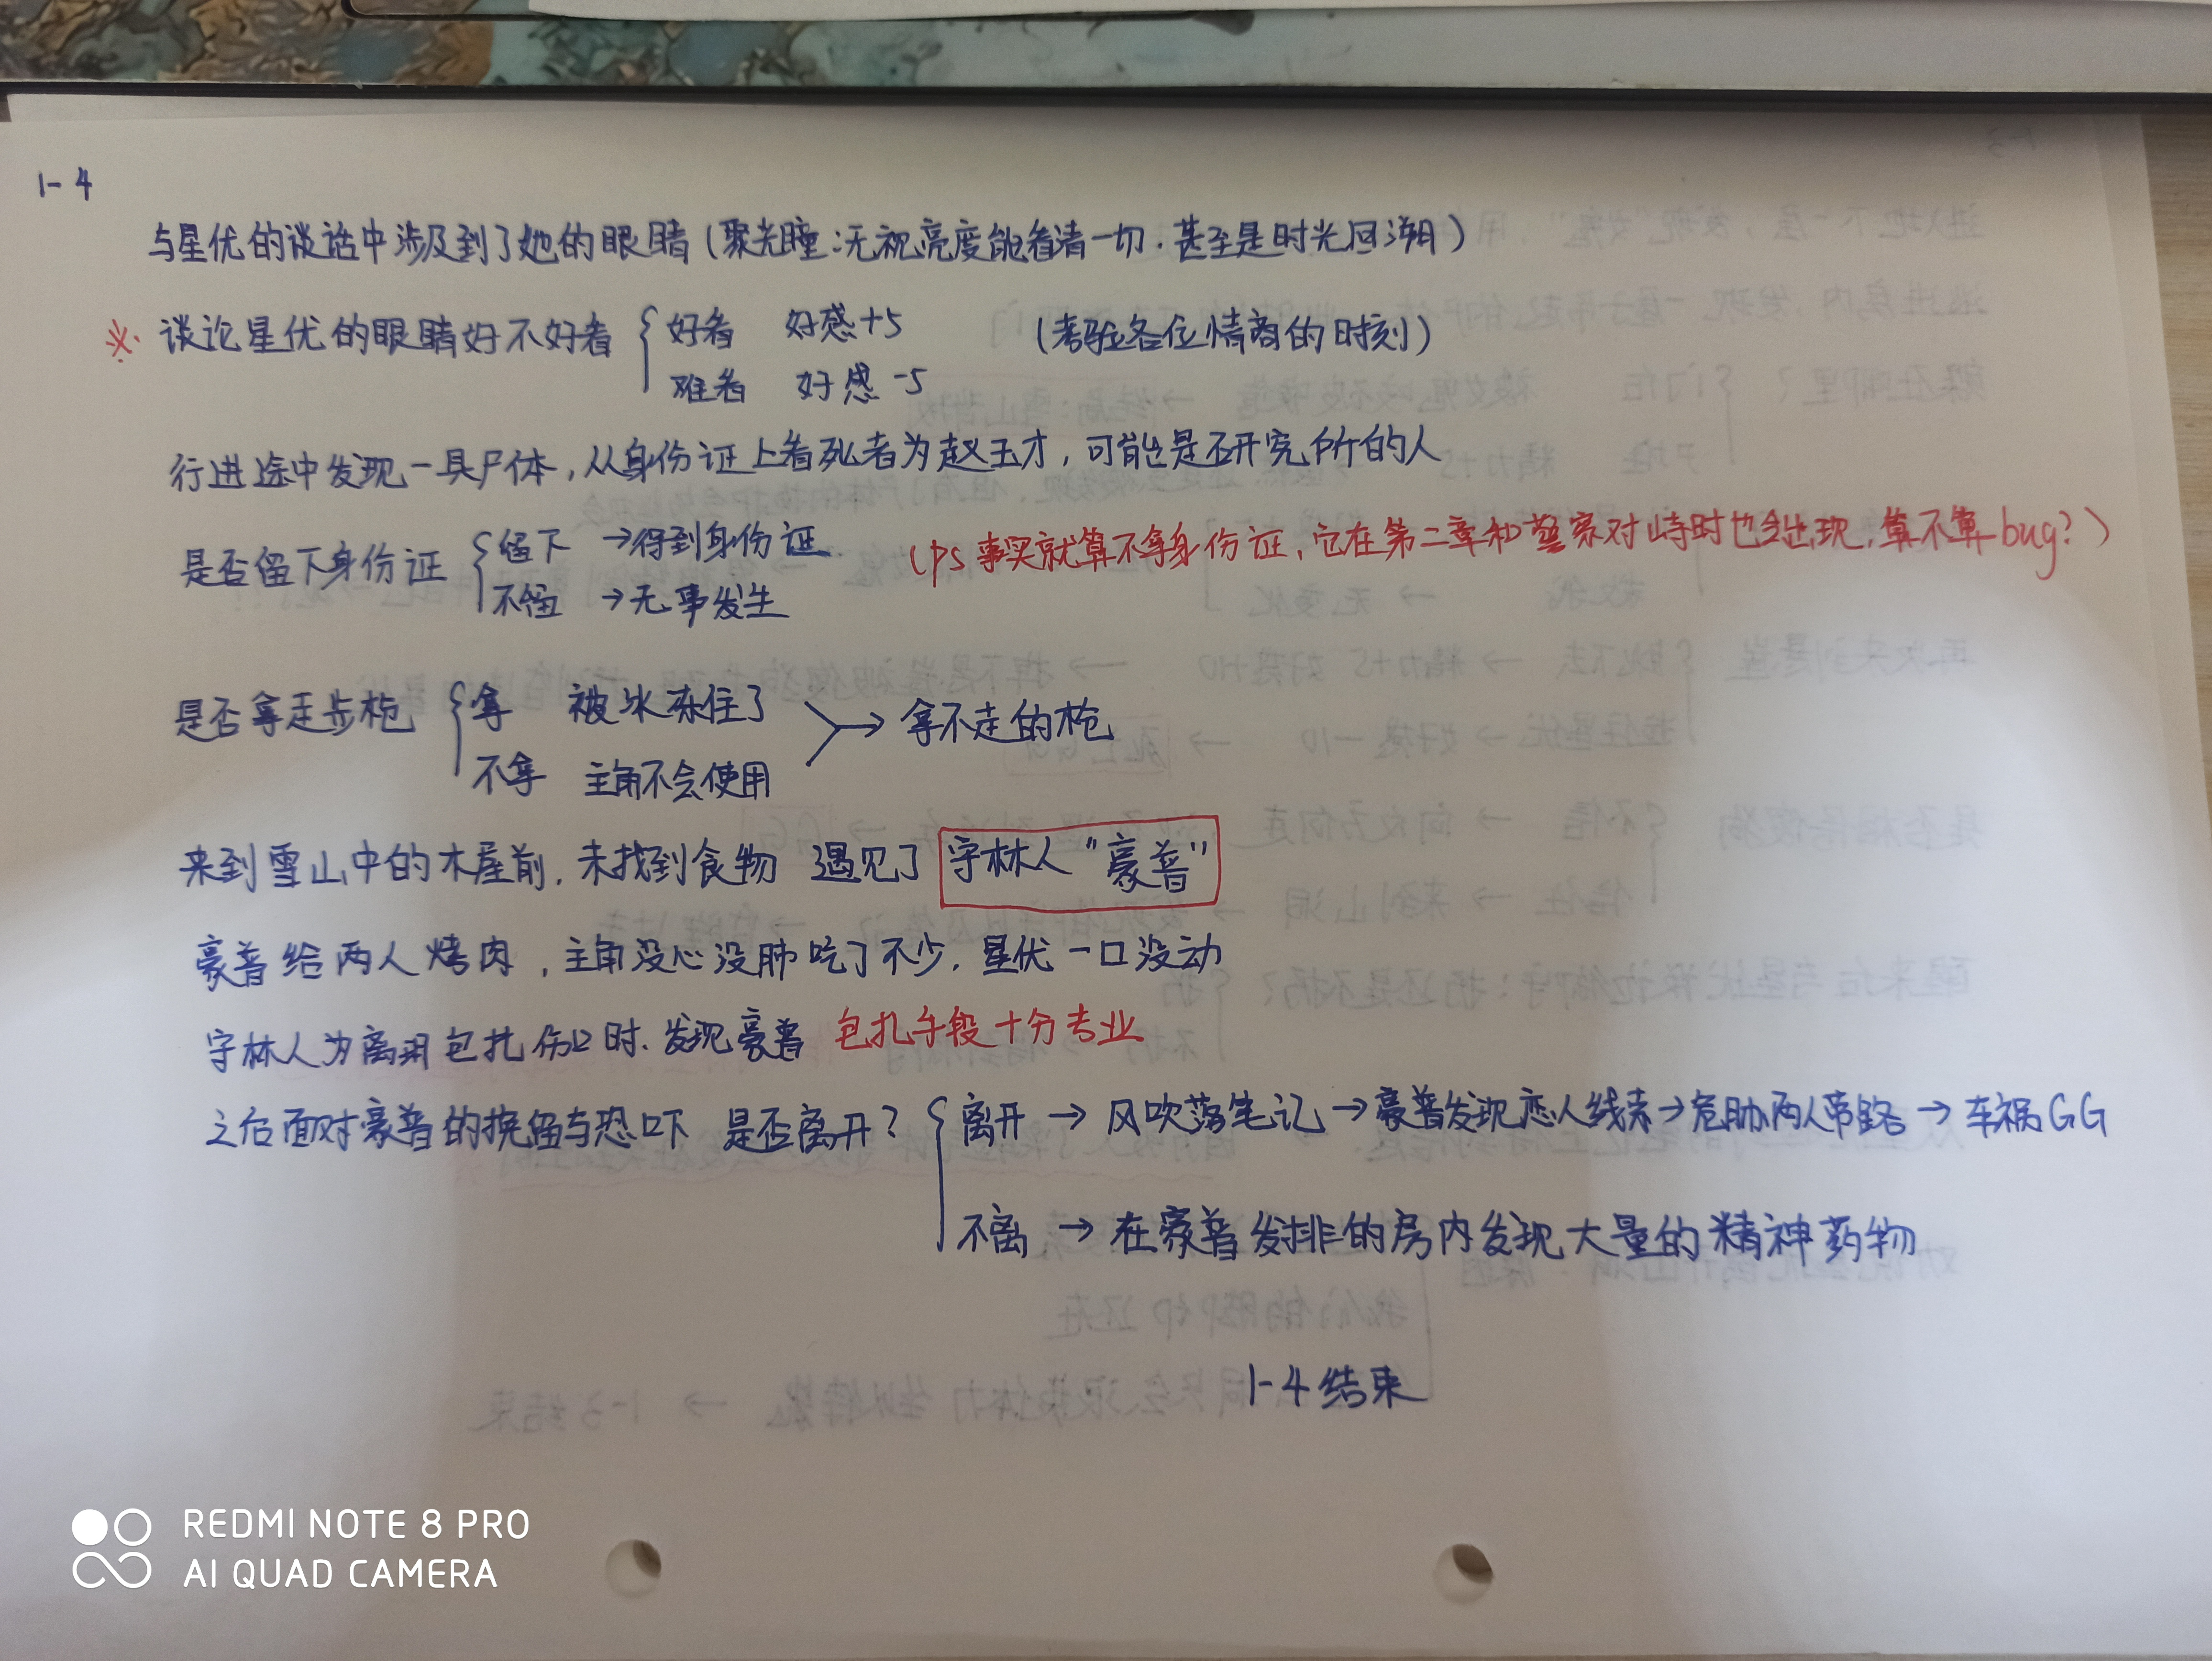 1-4
与星优的谈话中涉及到了她的眼睛(聚光瞳:无视亮度能看清一切.甚至是时光回溯)
※ 谈论星优的眼睛好不好看 { 好看 好感+5 (考验各位情商的时刻)
难看 好感-5
行进途中发现一具尸体,从身份证上看死者为赵玉才,可能是研究所的人
是否留下身份证 { 留下 →得到身份证. (ps 事实就算不拿身份证,它在第二章和警察对峙时也会出现,算不算bug?)
不留 →无事发生
是否拿走步枪 { 拿 被冰冻住了 → 拿不走的枪
不拿 主角不会使用
来到雪山中的木屋前,未找到食物 遇见了 守林人"豪普"
豪普给两人烤肉,主角没心没肺吃了不少,星优一口没动
守林人为离玥包扎伤口时.发现豪普 包扎手段十分专业
之后面对豪普的挽留与恐吓 是否离开? { 离开 → 风吹落笔记→豪普发现恋人线索→危胁两人带路 → 车祸GG
不离 → 在豪普发排的房内发现大量的精神药物
1-4结束
REDMI NOTE 8 PRO
AI QUAD CAMERA